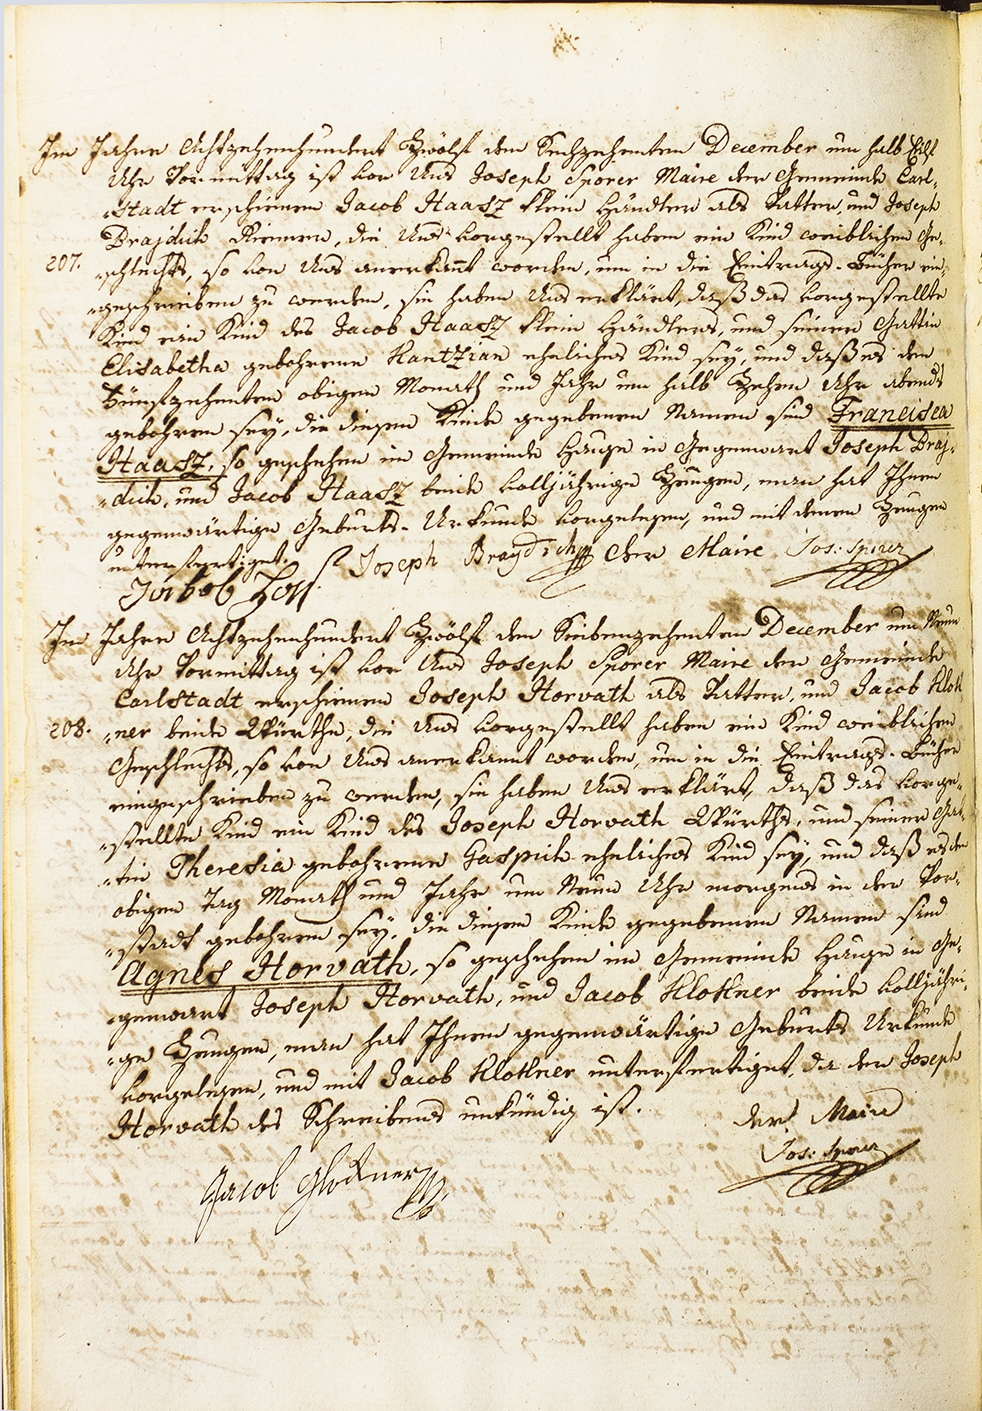 Im Jahre Achtzehenhundert Zwölf den Sechzehenten December um halb Eilf
Uhr Vormittag ist vor Uns Joseph Sporer Maire der Gemeinde Carl-
-Stadt erschienen Jacob Haasz klein Händler als Vatter, und Joseph
Brajdich Riemer, die Uns vorgestellt haben ein Kind weiblichen Ge-
207. -schlechts, so von Uns anerkant worden, um in die Eintrags-Bücher ein-
-geschrieben zu werden, sie haben Uns erklärt, daß das vorgestellte
Kind ein Kind des Jacob Haasz klein Händlers, und seiner Gattin
Elisabetha gebohrene Kantzian eheliches Kind sey, und daß es den
Fünfzehenten obigen Monath und Jahr um halb Zehen Uhr abends
gebohren sey, die diesem Kinde gegebenen Namen sind Francisca
Haasz, so geschehen im Gemeinde Hause in Gegenwart Joseph Braj-
-dich, und Jacob Haasz beide volljährige Zeugen, man hat Ihnen
gegenwärtige Geburts-Urkunde vorgelesen, und mit denen Zeugen
unterfertiget. Joseph Braydich Der Maire Jos: Sporer
Jakob
Im Jahre Achtzehenhundert Zwölf den Siebenzehenten December um Neun
Uhr Vormittag ist vor Uns Joseph Sporer Maire der Gemeinde
Carlstadt erschienen Joseph Horvath als Vatter, und Jacob Klok
208. -ner beide Würthe, die Uns vorgestellt haben ein Kind weiblichen
Geschlechts, so von Uns anerkannt worden, um in die Eintrags-Bücher
eingeschrieben zu werden, sie haben Uns erklärt, daß das vorge-
-stellte Kind ein Kind des Joseph Horvath Würths, und seiner Gat-
-tin Theresia gebohrene Gaspich eheliches Kind sey, und daß es den
obigen Tag Monath und Jahr um Neun Uhr morgens in der Vor-
-stadt gebohren sey, die diesem Kinde gegebenen Namen sind
Agnes Horvath, so geschehen im Gemeinde Hause in Ge-
-genwart Joseph Horvath, und Jacob Klokner beide volljähri-
-ge Zeugen, man hat Ihnen gegenwärtige Geburts Urkunde
vorgelesen, und mit Jacob Klokner unterfertiget, da der Joseph
Horvath des Schreibens unkündig ist. der Maire
Jos: Sporer
Jacob Glockner